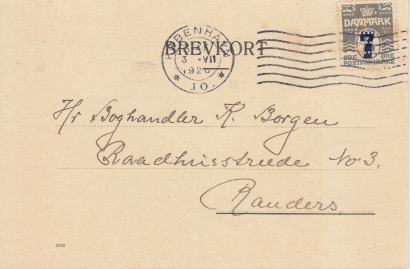 BREVKORT
KØBENHAVN
3 - VII
1926
* JO. *
DANMARK
7
ØRE ØRE
Hr Boghandler K. Borgen
Raadhusstræde No 3.
Randers.